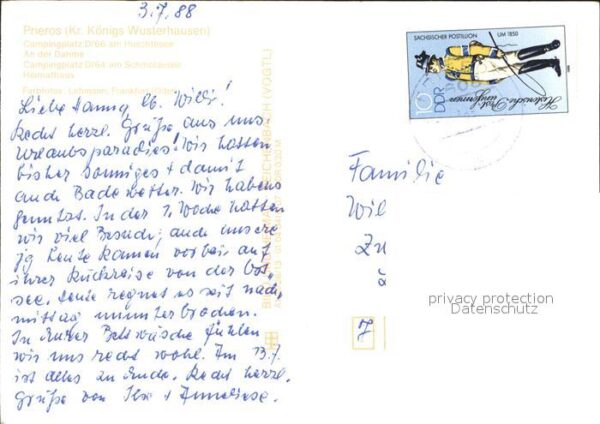 3.7.88
Prieros (Kr. Königs Wusterhausen)
Campingplatz D/66 am Huschtesee
An der Dahme
Campingplatz D/64 am Schmoldesee
Heimathaus
Farbfotos: Lehmann, Frankfurt (Oder)
Liebe Fanny, lb. Willi!
Recht herzl. Grüße aus uns.
Urlaubsparadies! Wir hatten
bisher sonniges + damit
auch Badewetter. Wir habens
genutzt. In der 1. Woche hatten
wir viel Besuch; auch unsere
jg Leute kamen vorbei auf
ihrer Rückreise von der Ost-
see. Heute regnet es seit nach-
mittag ununterbrochen.
In Eurer Bettwäsche fühlen
wir uns recht wohl. Am 13.7.
ist alles zu Ende. Recht herzl.
Grüße von Ilse + Anneliese.
SÄCHSISCHER POSTILLION UM 1850
10 DDR
Historische Post-
uniformen
Familie
Wil
Zu
7
privacy protection
Datenschutz